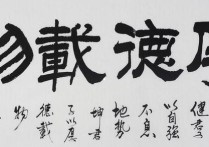 德載
健君
以自強
不息
地勢
坤君
子以厚
德載
物